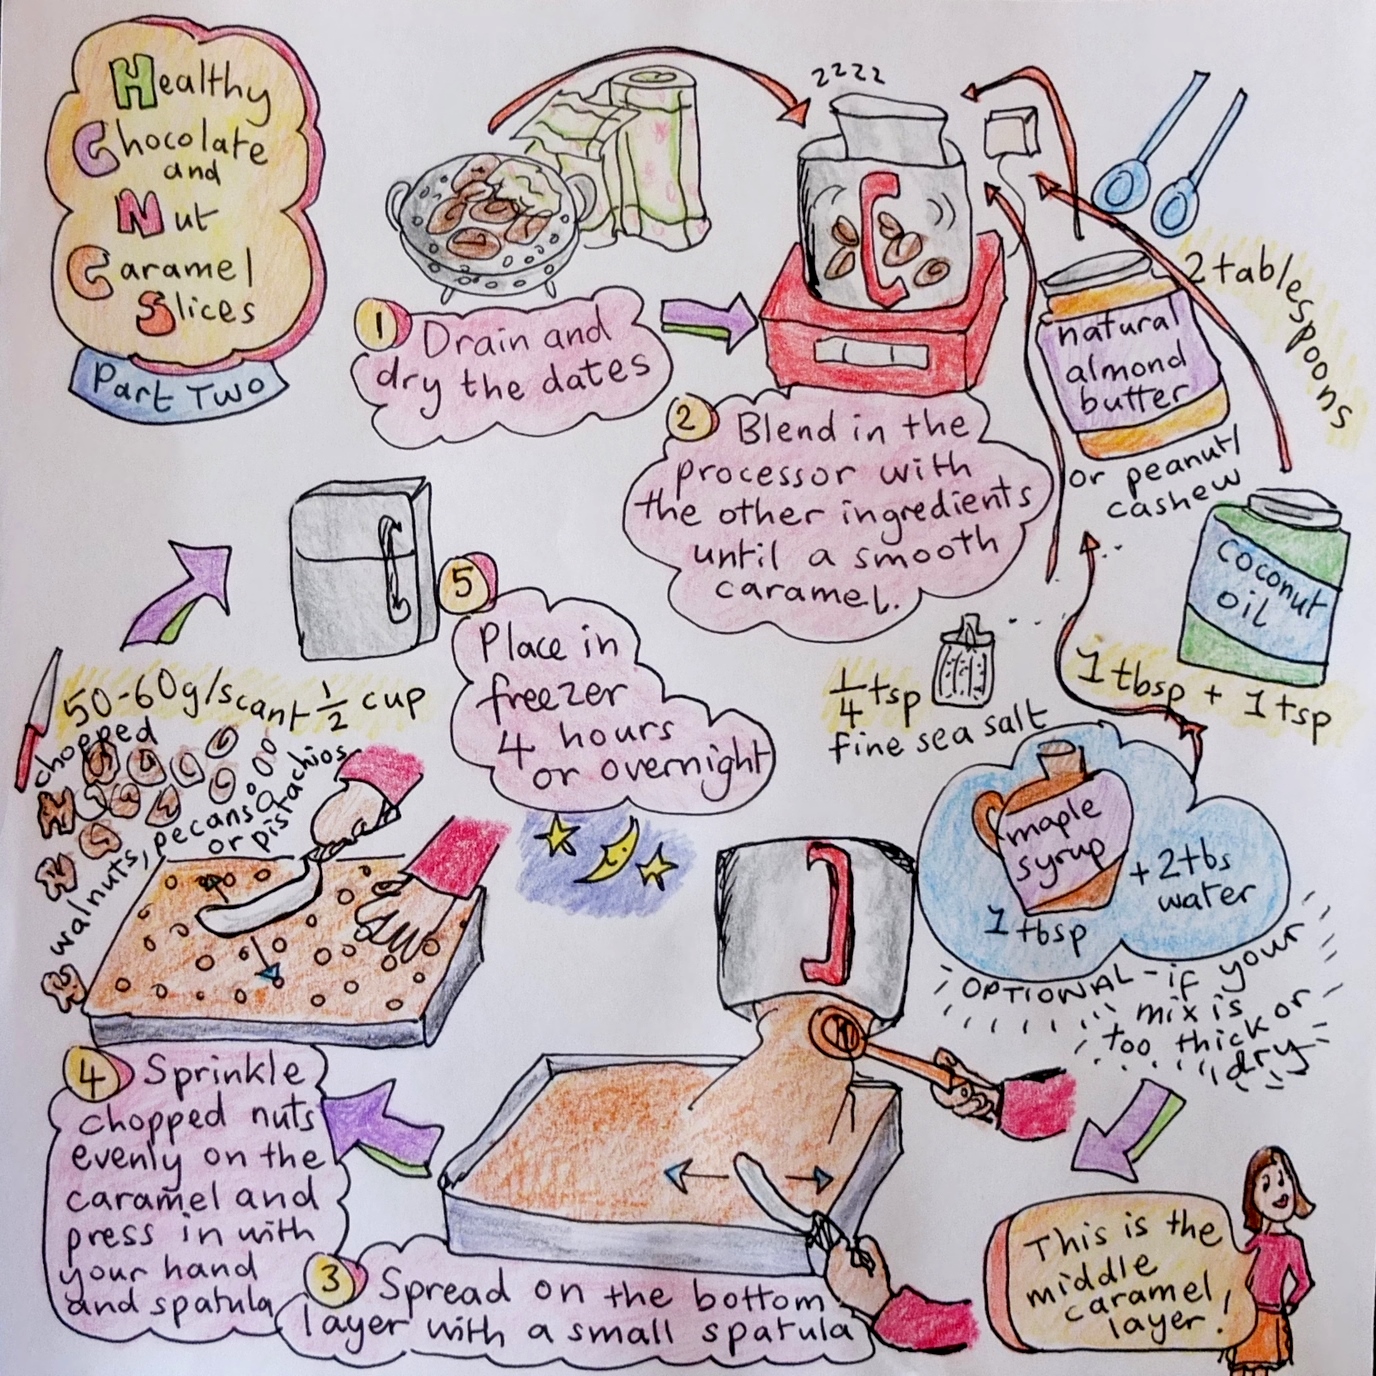 Healthy
Chocolate
and
Nut
Caramel
Slices
Part Two
1 Drain and
dry the dates
zzzz
2 tablespoons
natural
almond
butter
or peanut/
cashew
2 Blend in the
processor with
the other ingredients
until a smooth
caramel.
coconut
oil
1 tbsp + 1 tsp
1/4 tsp
fine sea salt
maple
syrup
1 tbsp
+ 2 tbs
water
OPTIONAL - if your
mix is
too thick or
dry
This is the
middle
caramel
layer!
3 Spread on the bottom
layer with a small spatula
4 Sprinkle
chopped nuts
evenly on the
caramel and
press in with
your hand
and spatula
50-60g/scant 1/2 cup
chopped
walnuts, pecans
or pistachios
5 Place in
freezer
4 hours
or overnight